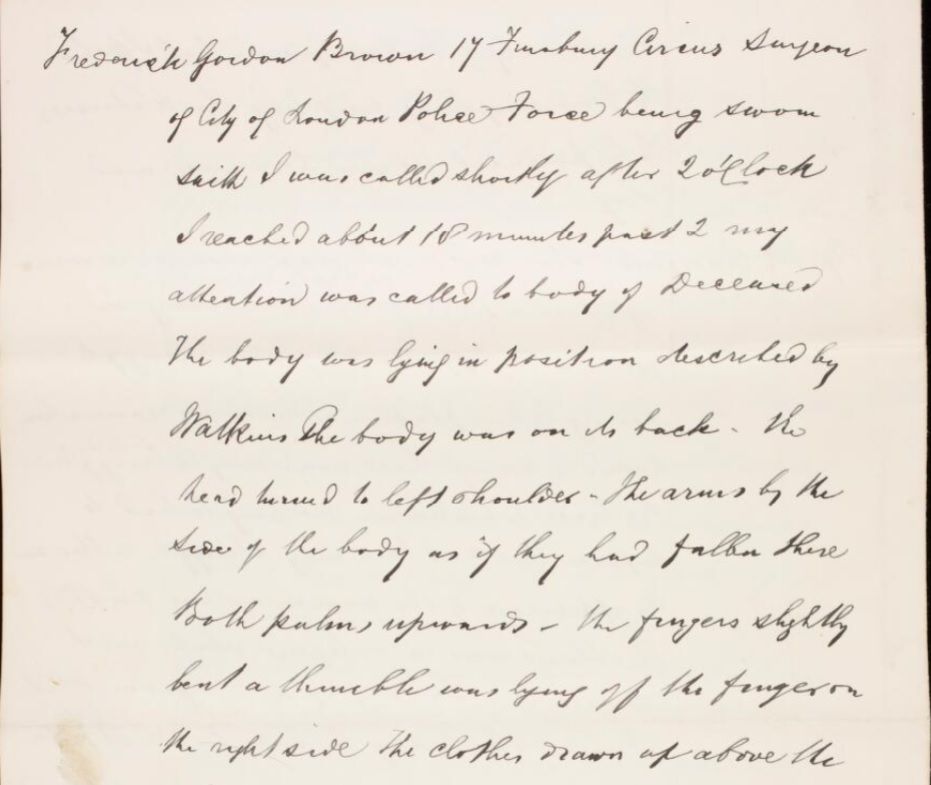 Frederick Gordon Brown 17 Finsbury Circus Surgeon
of City of London Police Force being sworn
saith I was called shortly after 2 o'Clock
I reached about 18 minutes past 2 my
attention was called to body of Deceased
The body was lying in position described by
Watkins The body was on its back - the
head turned to left shoulder - the arms by the
side of the body as if they had fallen there
Both palms upwards - the fingers slightly
bent a thimble was lying off the finger on
the right side the clothes drawn up above the